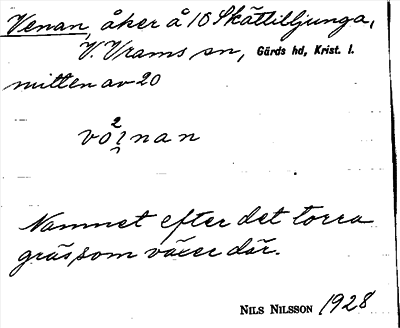 Venan, åker å 10 Skättilljunga,
V. Vrams sn, Gärds hd, Krist. l.
mitten av 20
Namnet efter det torra
gräs, som växer där.
NILS NILSSON 1928